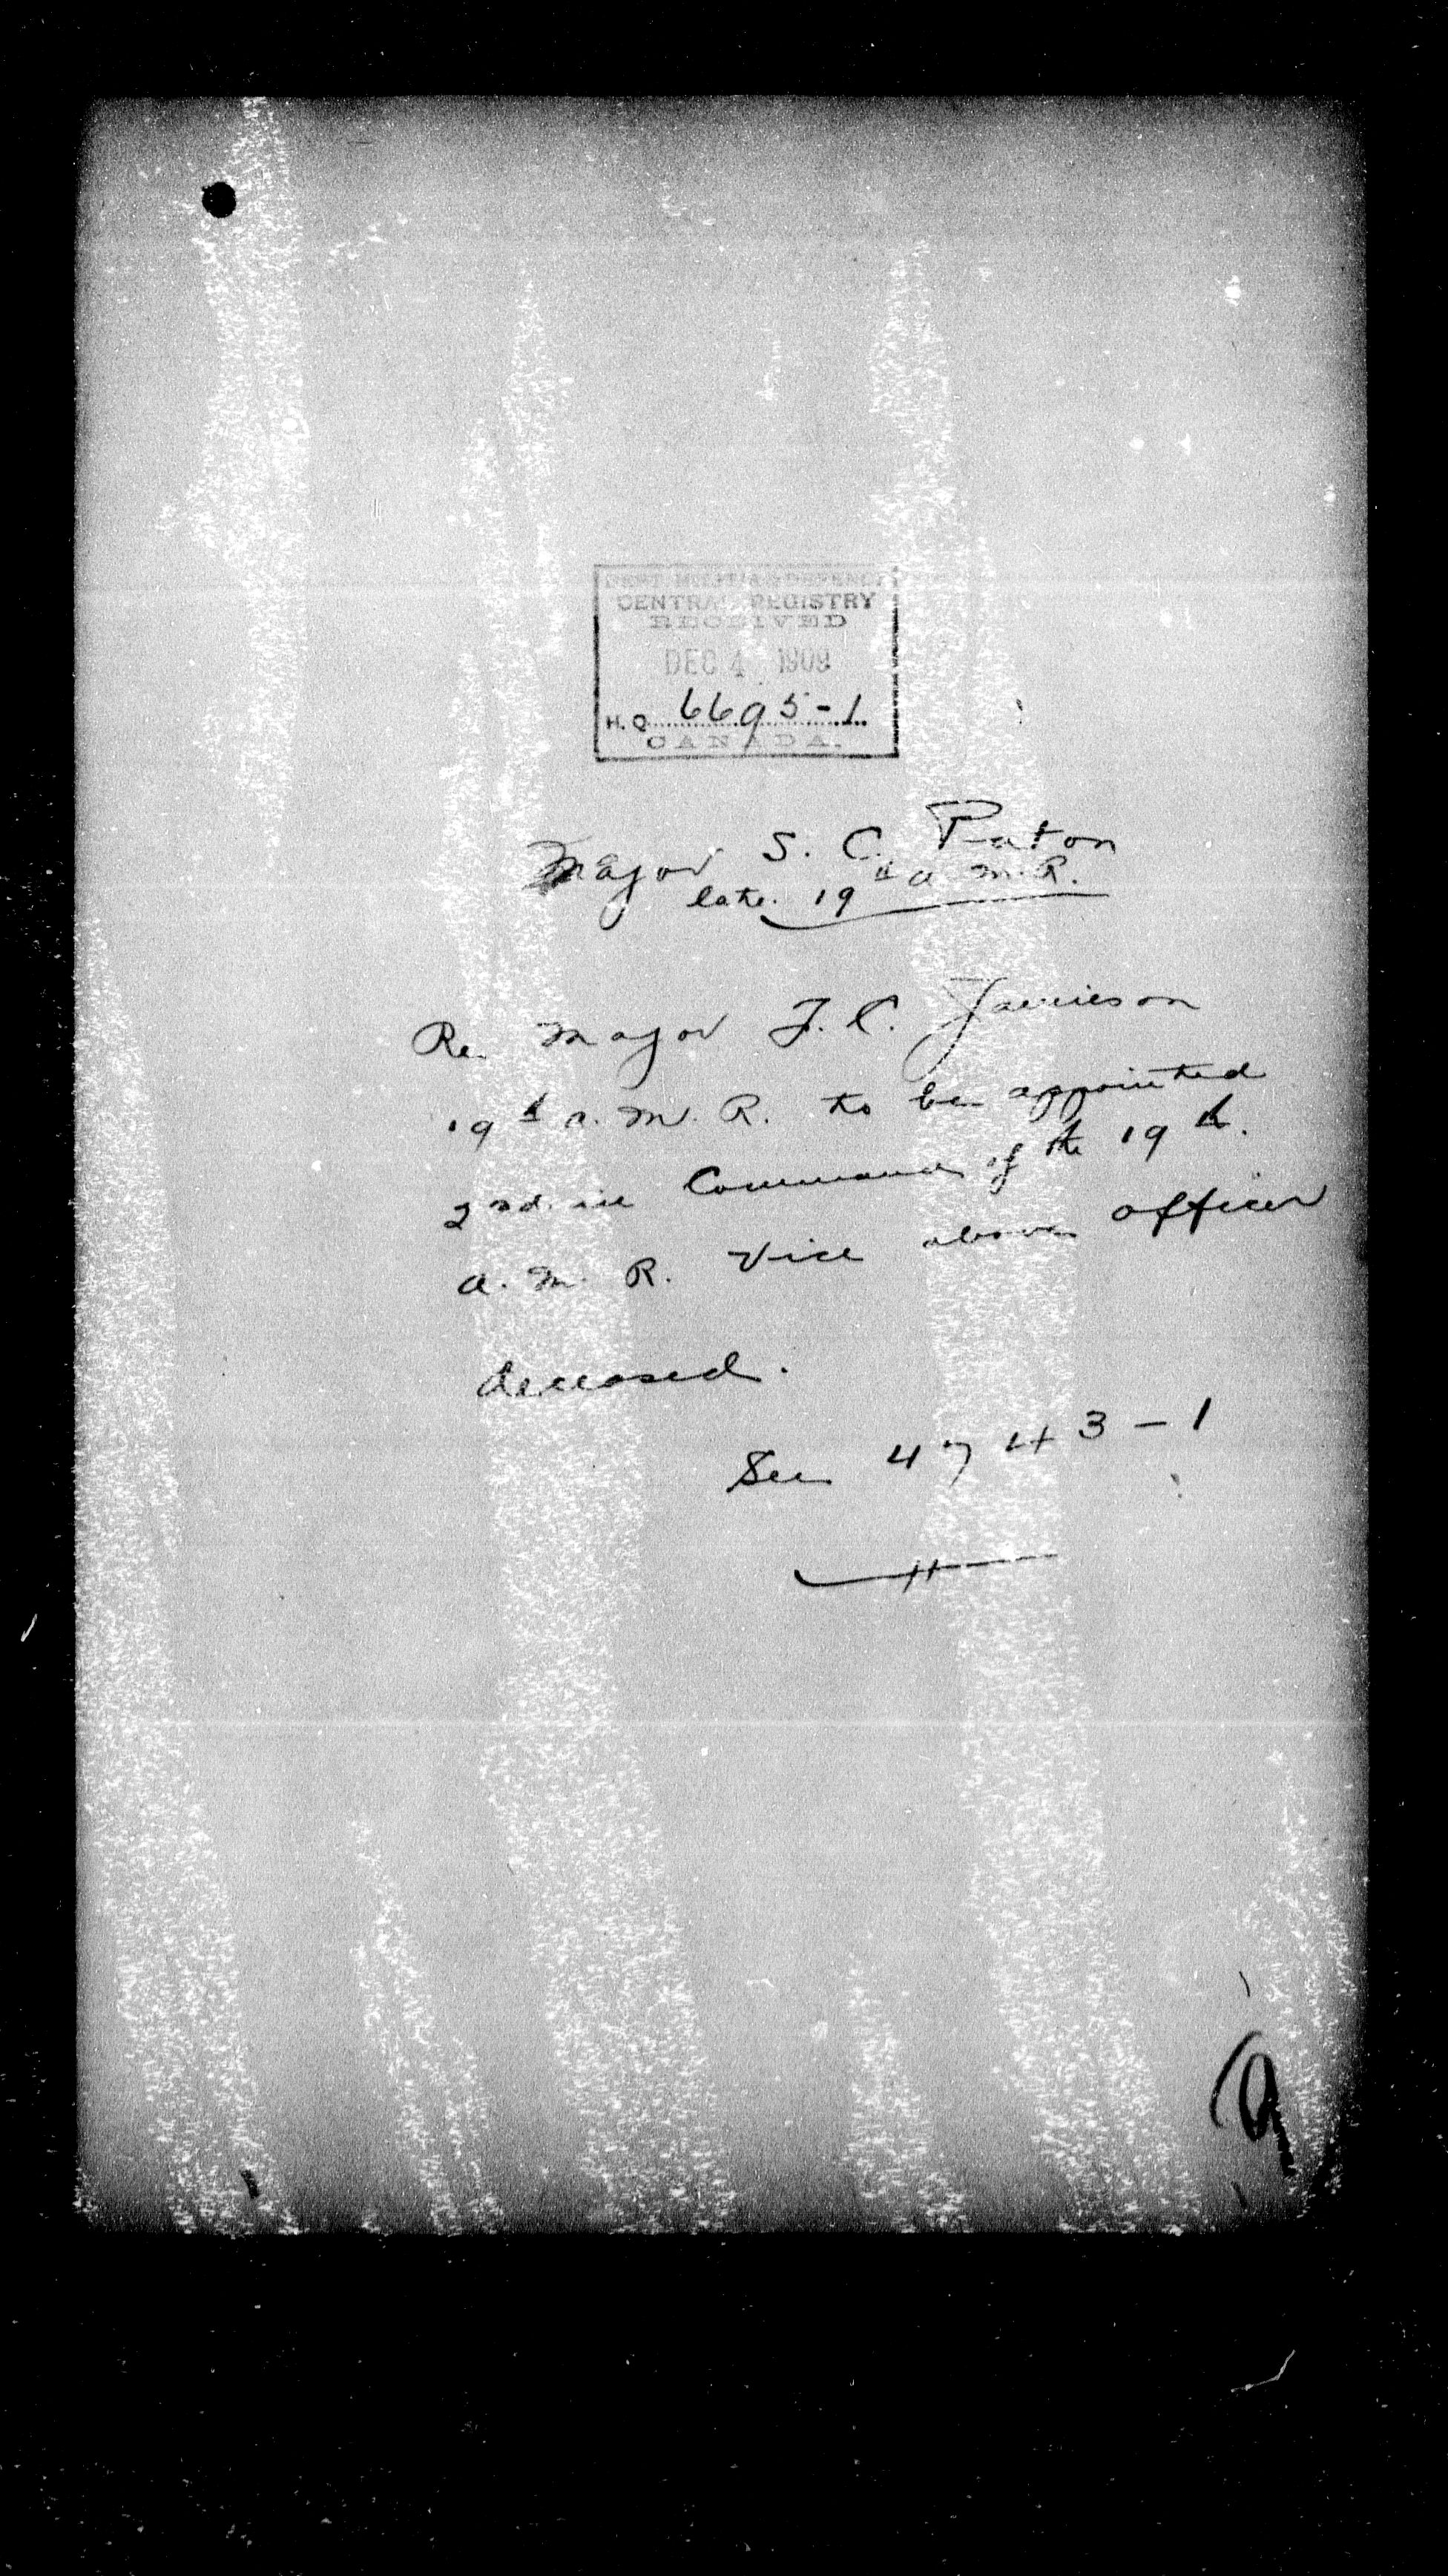 DEPT MILITIA & DEFENCE
CENTRAL REGISTRY
RECEIVED
DEC 4 1909
H. Q. 6695-1
CANADA.
Major S. C. Paton
late. 19th A. M. R.
Re. Major F. C. Jamieson
19th A. M. R. to be appointed
2nd in Command of the 19th.
A. M. R. Vice above officer
deceased.
See 4743-1